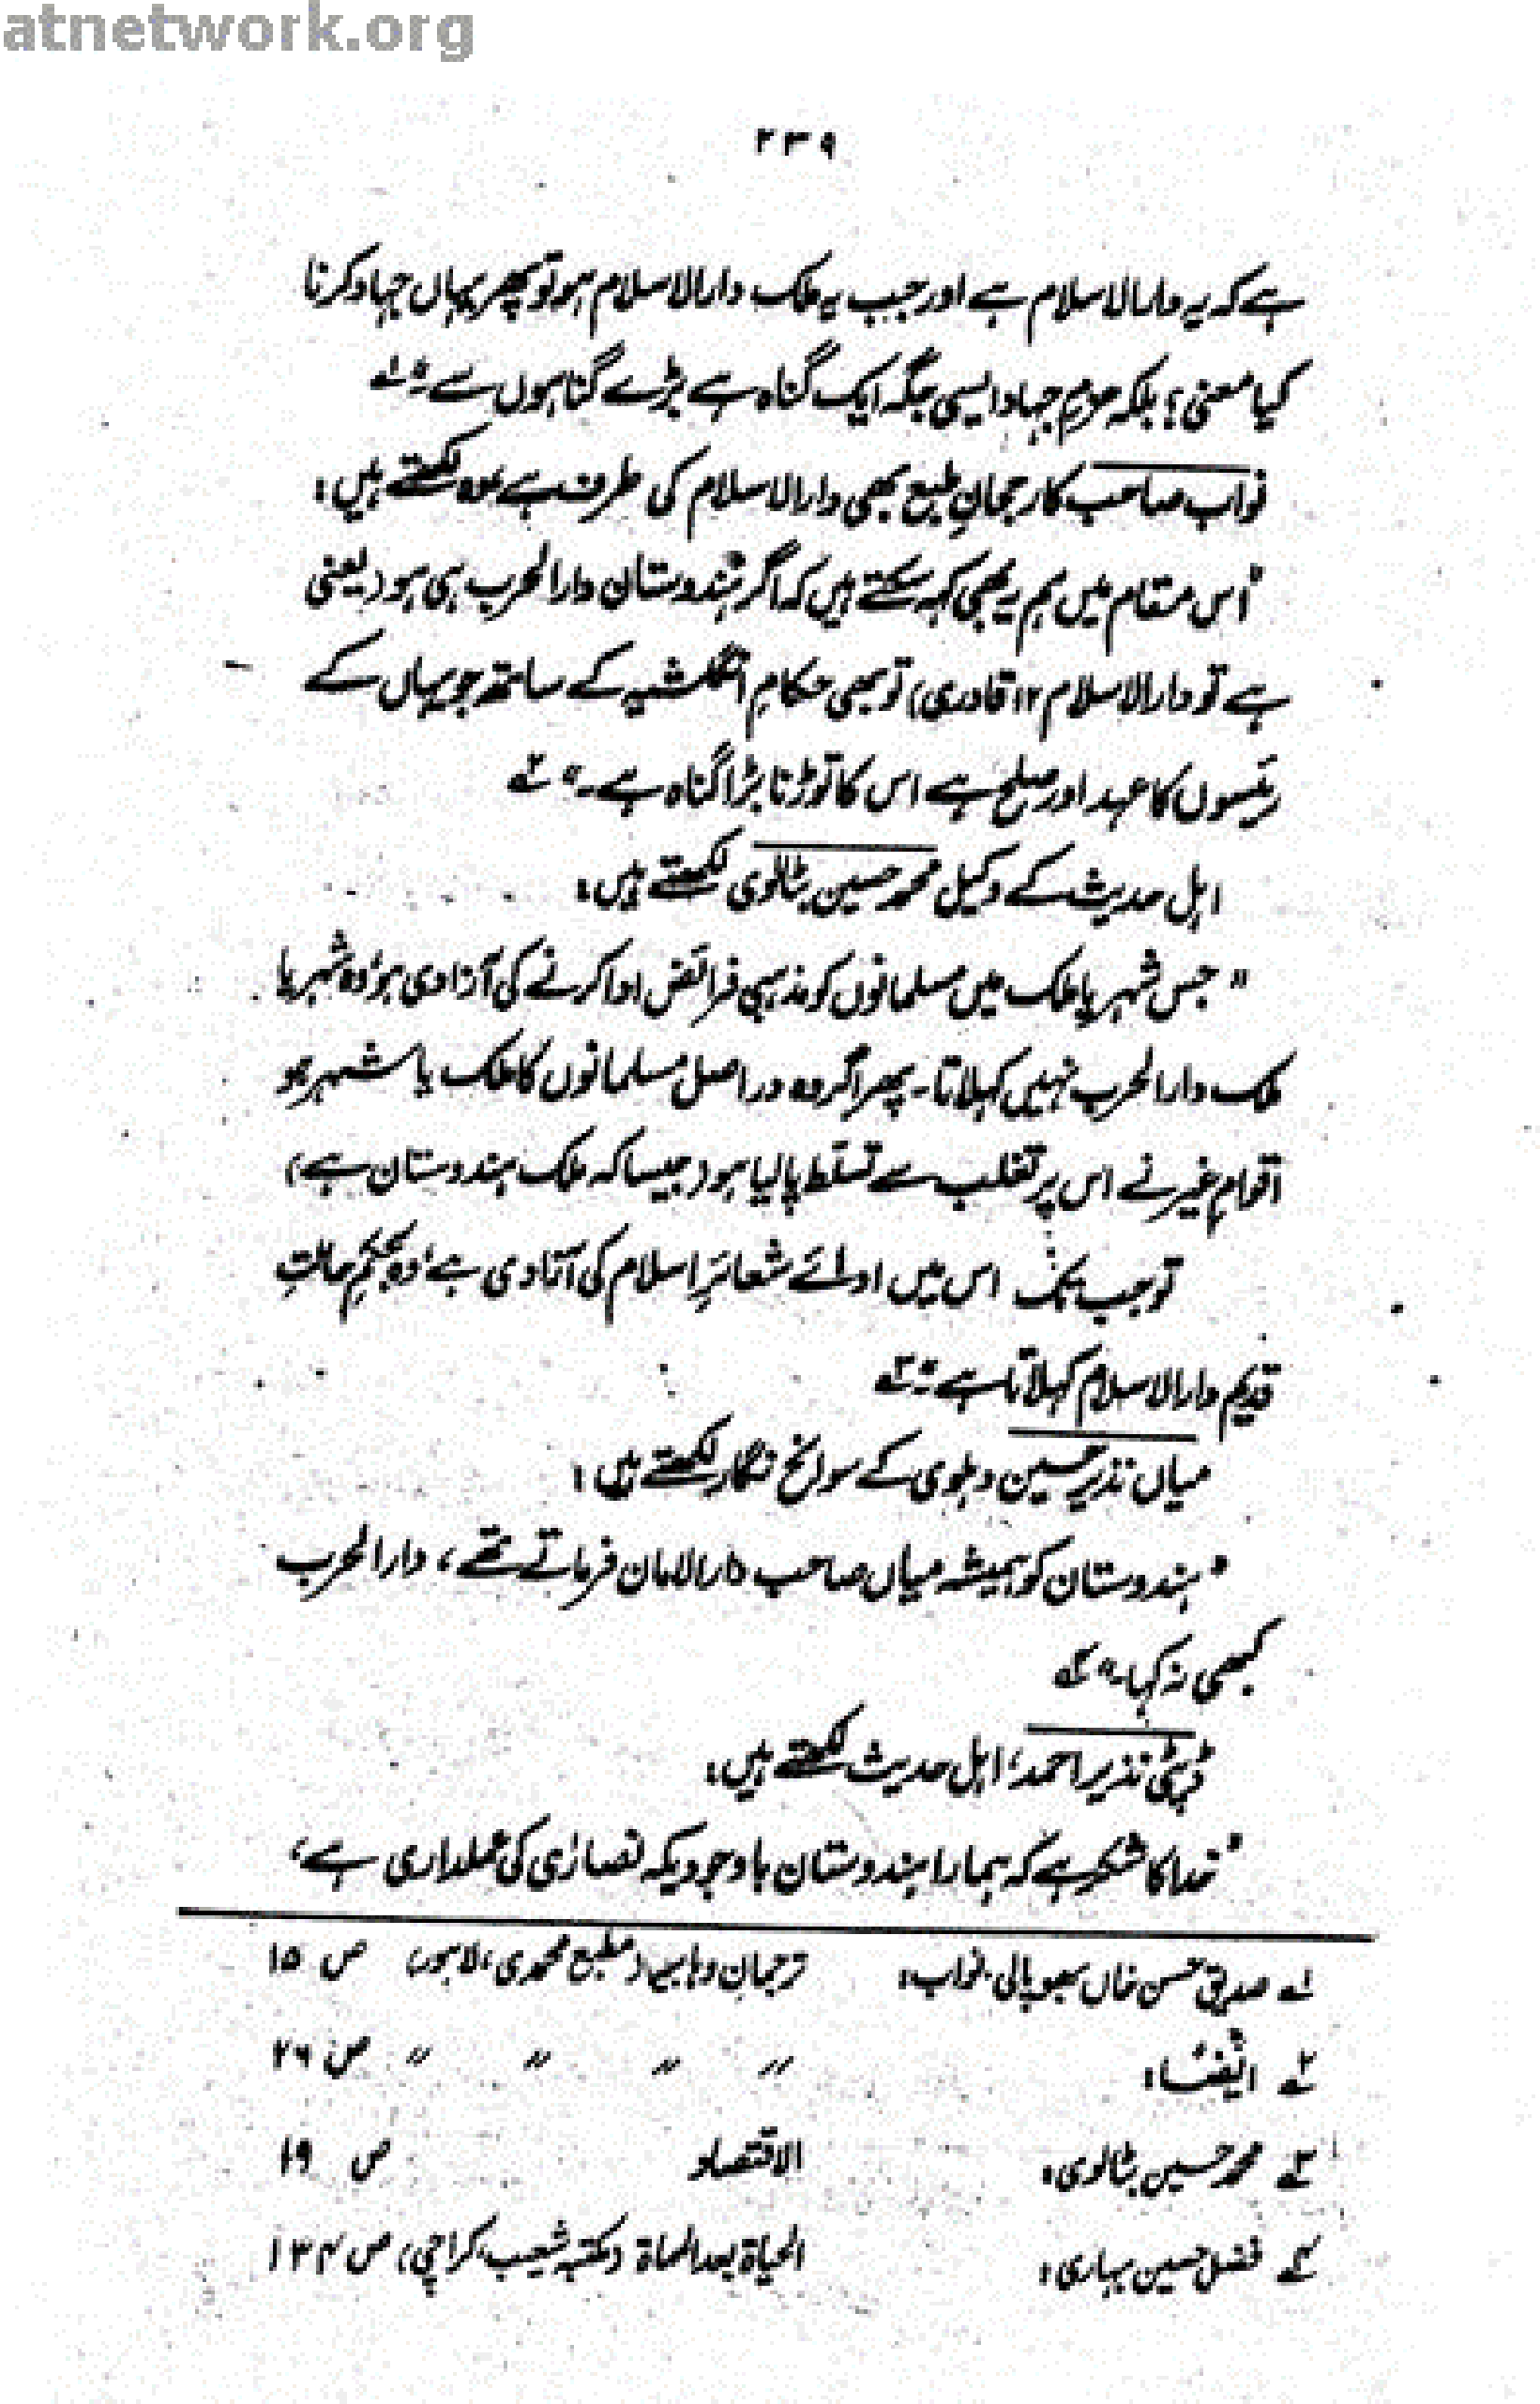 atnetwork.org
۲۳۹
ہے کہ یہ دارالاسلام ہے اور جب یہ ملک دارالاسلام ہو تو پھر یہاں جہاد کرنا
کیا معنی؟ بلکہ عزمِ جہاد ایسی جگہ ایک گناہ ہے بڑے گناہوں سے۔" ۱؎
نواب صاحب کا رجحانِ طبع بھی دارالاسلام کی طرف ہے وہ لکھتے ہیں:
"اس مقام میں ہم یہ بھی کہہ سکتے ہیں کہ اگر ہندوستان دارالحرب ہی ہو (یعنی
ہے تو دارالاسلام ۱۲ قادری) تو بھی حکامِ انگلشیہ کے ساتھ جو یہاں کے
رئیسوں کا عہد اور صلح ہے اس کا توڑنا بڑا گناہ ہے۔" ۲؎
اہل حدیث کے وکیل محمد حسین بٹالوی لکھتے ہیں:
"جس شہر یا ملک میں مسلمانوں کو مذہبی فرائض ادا کرنے کی آزادی ہو، وہ شہر یا
ملک دارالحرب نہیں کہلاتا۔ پھر اگر وہ دراصل مسلمانوں کا ملک یا شہر ہو
اقوامِ غیر نے اس پر تغلب سے تسلّط پا لیا ہو (جیسا کہ ملک ہندوستان ہے)
تو جب تک اس میں ادائے شعائرِ اسلام کی آزادی ہے، وہ بحکمِ حالتِ
قدیم دارالاسلام کہلاتا ہے۔" ۳؎
میاں نذیر حسین دہلوی کے سوانح نگار لکھتے ہیں:
"ہندوستان کو ہمیشہ میاں صاحب دارالامان فرماتے تھے، دارالحرب
کبھی نہ کہا۔" ۴؎
ڈپٹی نذیر احمد، اہل حدیث لکھتے ہیں:
"خدا کا شکر ہے کہ ہمارا ہندوستان باوجودیکہ نصاریٰ کی عملداری ہے،
۱؎ صدیق حسن خاں بھوپالی، نواب: ترجمان وہابیہ (مطبع محمدی، لاہور) ص ۱۵
۲؎ ایضًا: " " " " ص ۲۶
۳؎ محمد حسین بٹالوی: الاقتصاد ص ۱۹
۴؎ فضل حسین بہاری: الحیاۃ بعد المماۃ (مکتبہ شعیب، کراچی) ص ۱۳۴